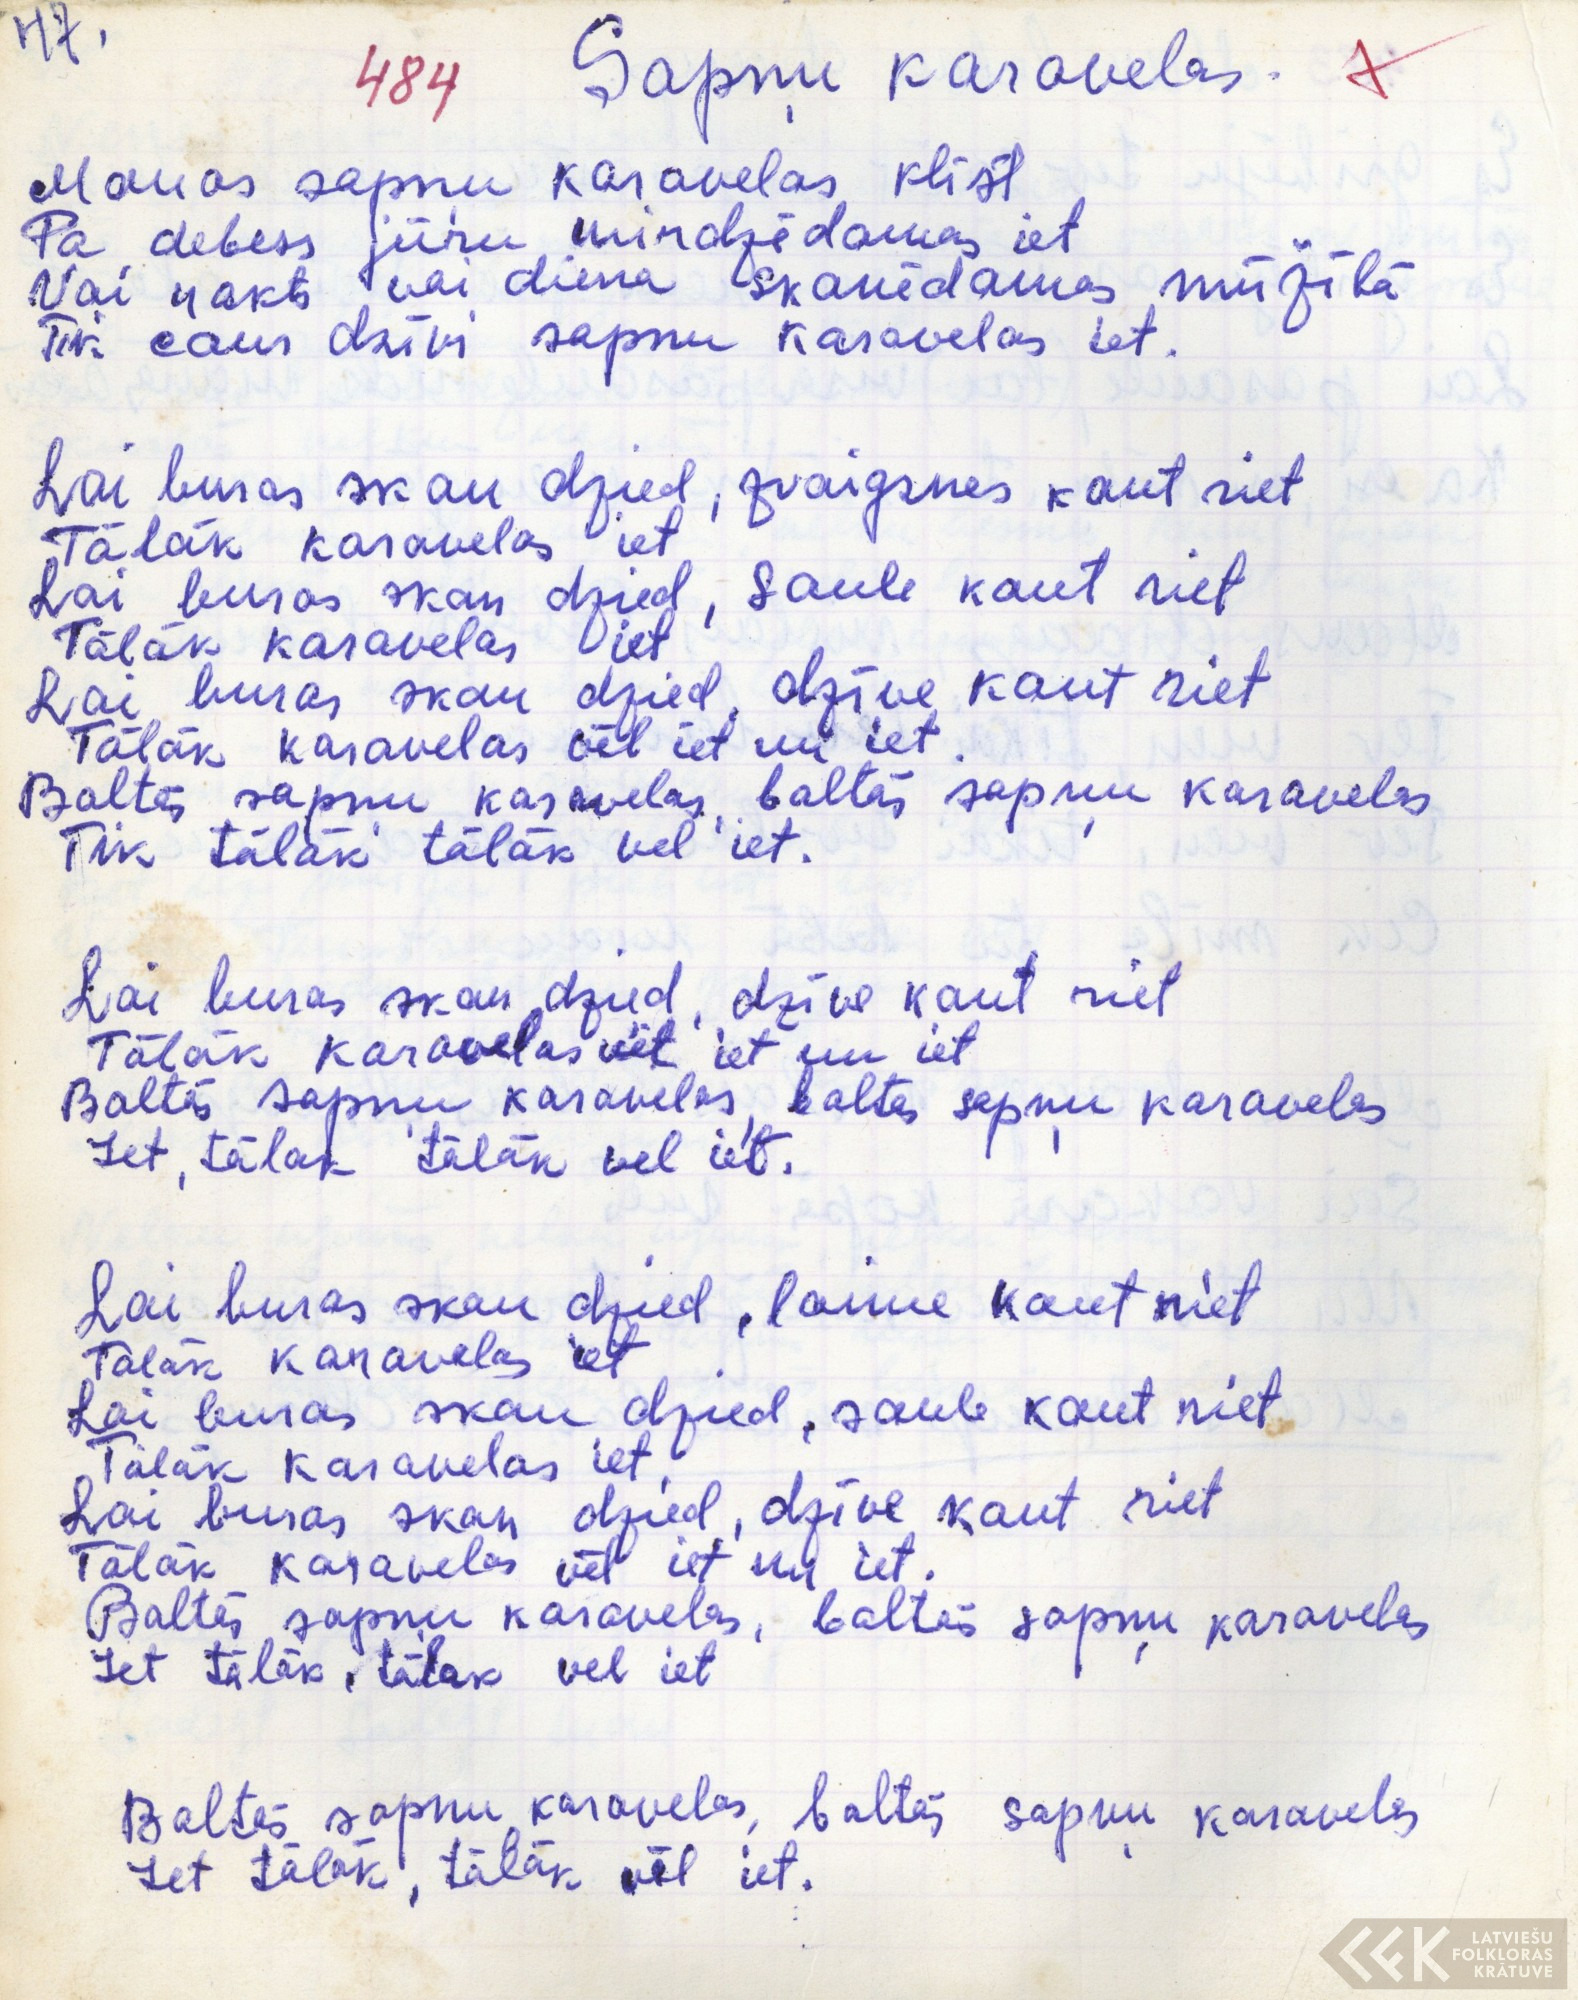 47.
484 Sapņu karavelas.
Manas sapņu karavelas klīst
Pa debess jūru mirdzēdamas iet
Vai nakts vai diena skanēdamas mūžīlā
Tik caur dzīvi sapņu karavelas iet.
Lai buras skan dzied, zvaigznes kaut riet,
Tālāk karavelas iet
Lai buras skan dzied, saule kaut riet
Tālāk karavelas iet
Lai buras skan dzied, dzīve kaut riet
Tālāk karavelas vēl iet un iet.
Baltās sapņu karavelas, baltās sapņu karavelas
Tik tālāk tālāk vel iet.
Lai buras skan dzied, dzīve kaut riet
Tālāk karavelas vēl iet un iet
Baltās sapņu karavelas, baltās sapņu karavelas
Iet, tālak tālāk vel iet.
Lai buras skan dzied, laime kaut riet
Tālāk karavelas iet
Lai buras skan dzied, saule kaut riet
Tālāk karavelas iet,
Lai buras skan dzied, dzīve kaut riet
Tālāk karavelas vēl iet un iet.
Baltās sapņu karavelas, baltās sapņu karavelas
Iet tālāk, tālak vel iet
Baltās sapņu karavelas, baltās sapņu karavelas
Iet tālāk, tālāk vēl iet.
LATVIEŠU
FOLKLORAS
KRĀTUVE